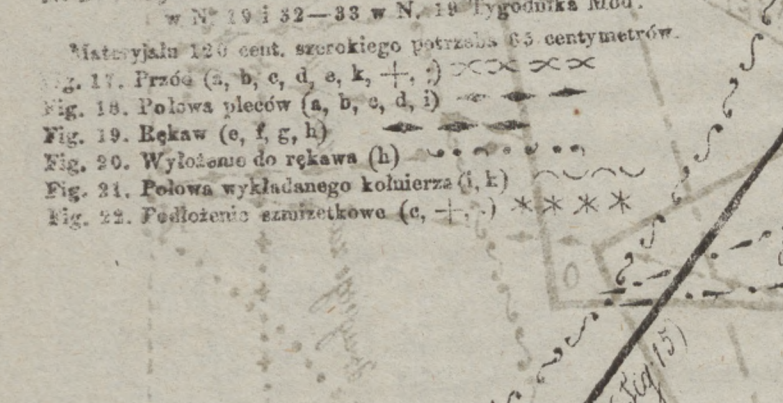 w N. 19 i 32—33 w N. 19 Tygodnika Mód.
Materyjału 120 cent. szerokiego potrzeba 65 centymetrów.
Fig. 17. Przód (a, b, c, d, e, k, +, :)
Fig. 18. Połowa pleców (a, b, c, d, i)
Fig. 19. Rękaw (e, f, g, h)
Fig. 20. Wyłożenie do rękawa (h)
Fig. 21. Połowa wykładanego kołnierza (i, k)
Fig. 22. Podłożenie szmizetkowe (c, +, .)
(Fig. 15)